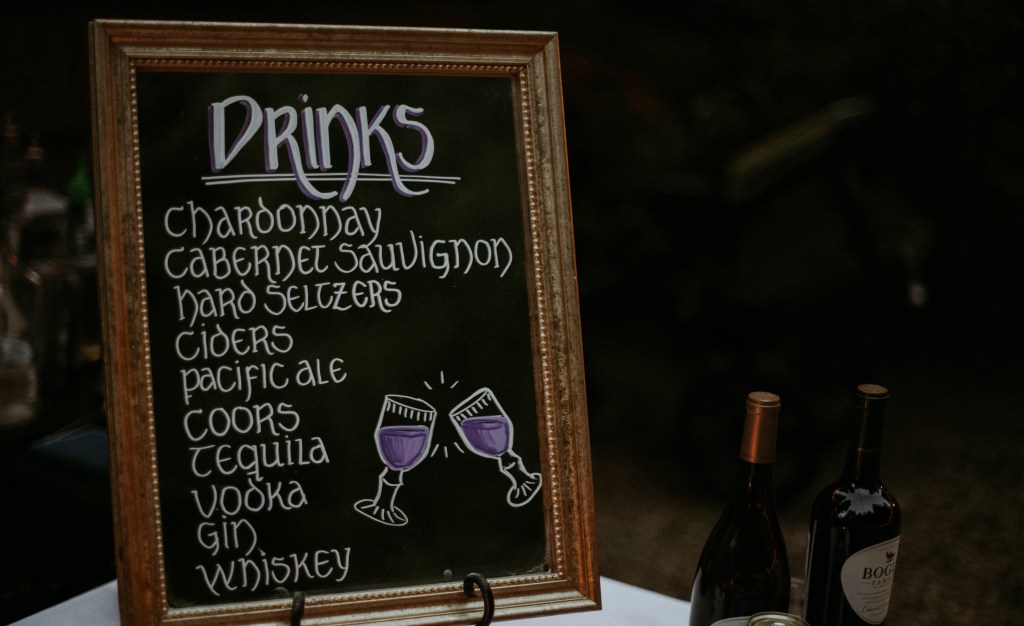 Drinks
Chardonnay
Cabernet Sauvignon
Hard Seltzers
Ciders
Pacific Ale
Coors
Tequila
Vodka
Gin
Whiskey